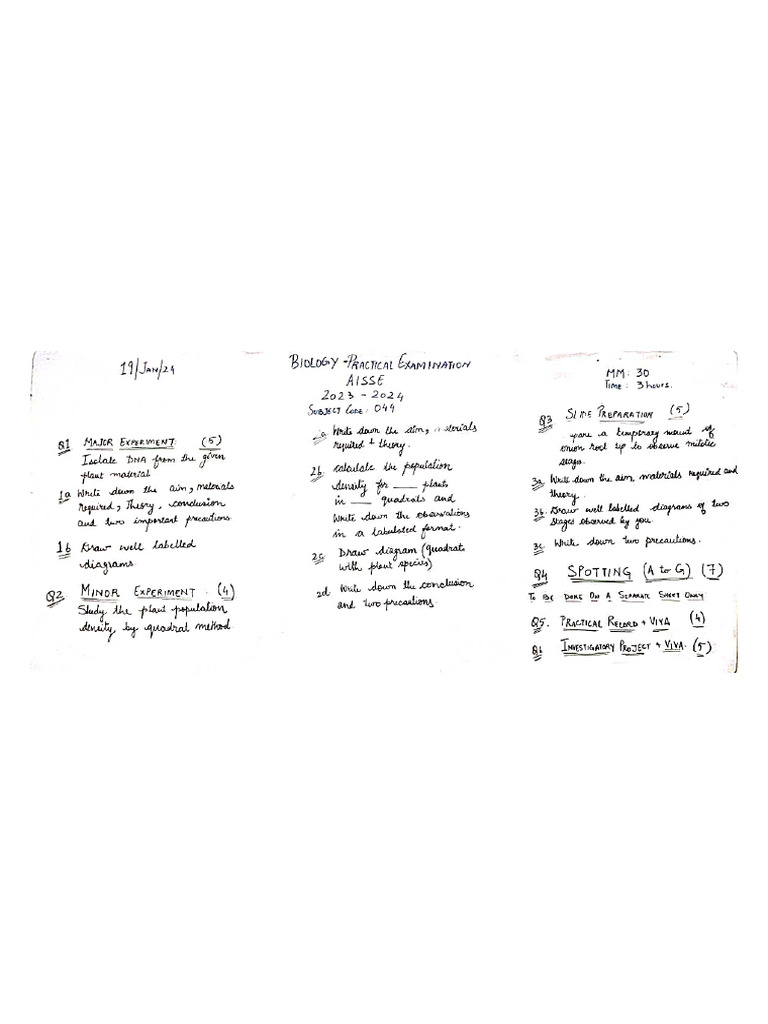 19/JAN/24
BIOLOGY - PRACTICAL EXAMINATION
AISSE
2023 - 2024
SUBJECT CODE: 044
MM: 30
TIME: 3 hours.
Q1 MAJOR EXPERIMENT (5)
Isolate DNA from the given
plant material
1a Write down the aim, materials
required, theory, conclusion
and two important precautions.
1b Draw well labelled
diagrams.
Q2 MINOR EXPERIMENT. (4)
Study the plant population
density by quadrat method
2a Write down the aim, materials
required + theory.
2b calculate the population
density for ____ plants
in ____ quadrats and
Write down the observations
in a tabulated format.
2c Draw diagram (quadrats
with plant species)
2d Write down the conclusion
and two precautions.
Q3 SLIDE PREPARATION (5)
pare a temporary mount of
onion root tip to observe mitotic
stages.
3a Write down the aim materials required and
theory.
3b. Draw well labelled diagrams of two
stages observed by you.
3c Write down two precautions.
Q4 SPOTTING (A to G) (7)
TO BE DONE ON A SEPARATE SHEET ONLY
Q5. PRACTICAL RECORD + VIVA (4)
Q6 INVESTIGATORY PROJECT + VIVA. (5)